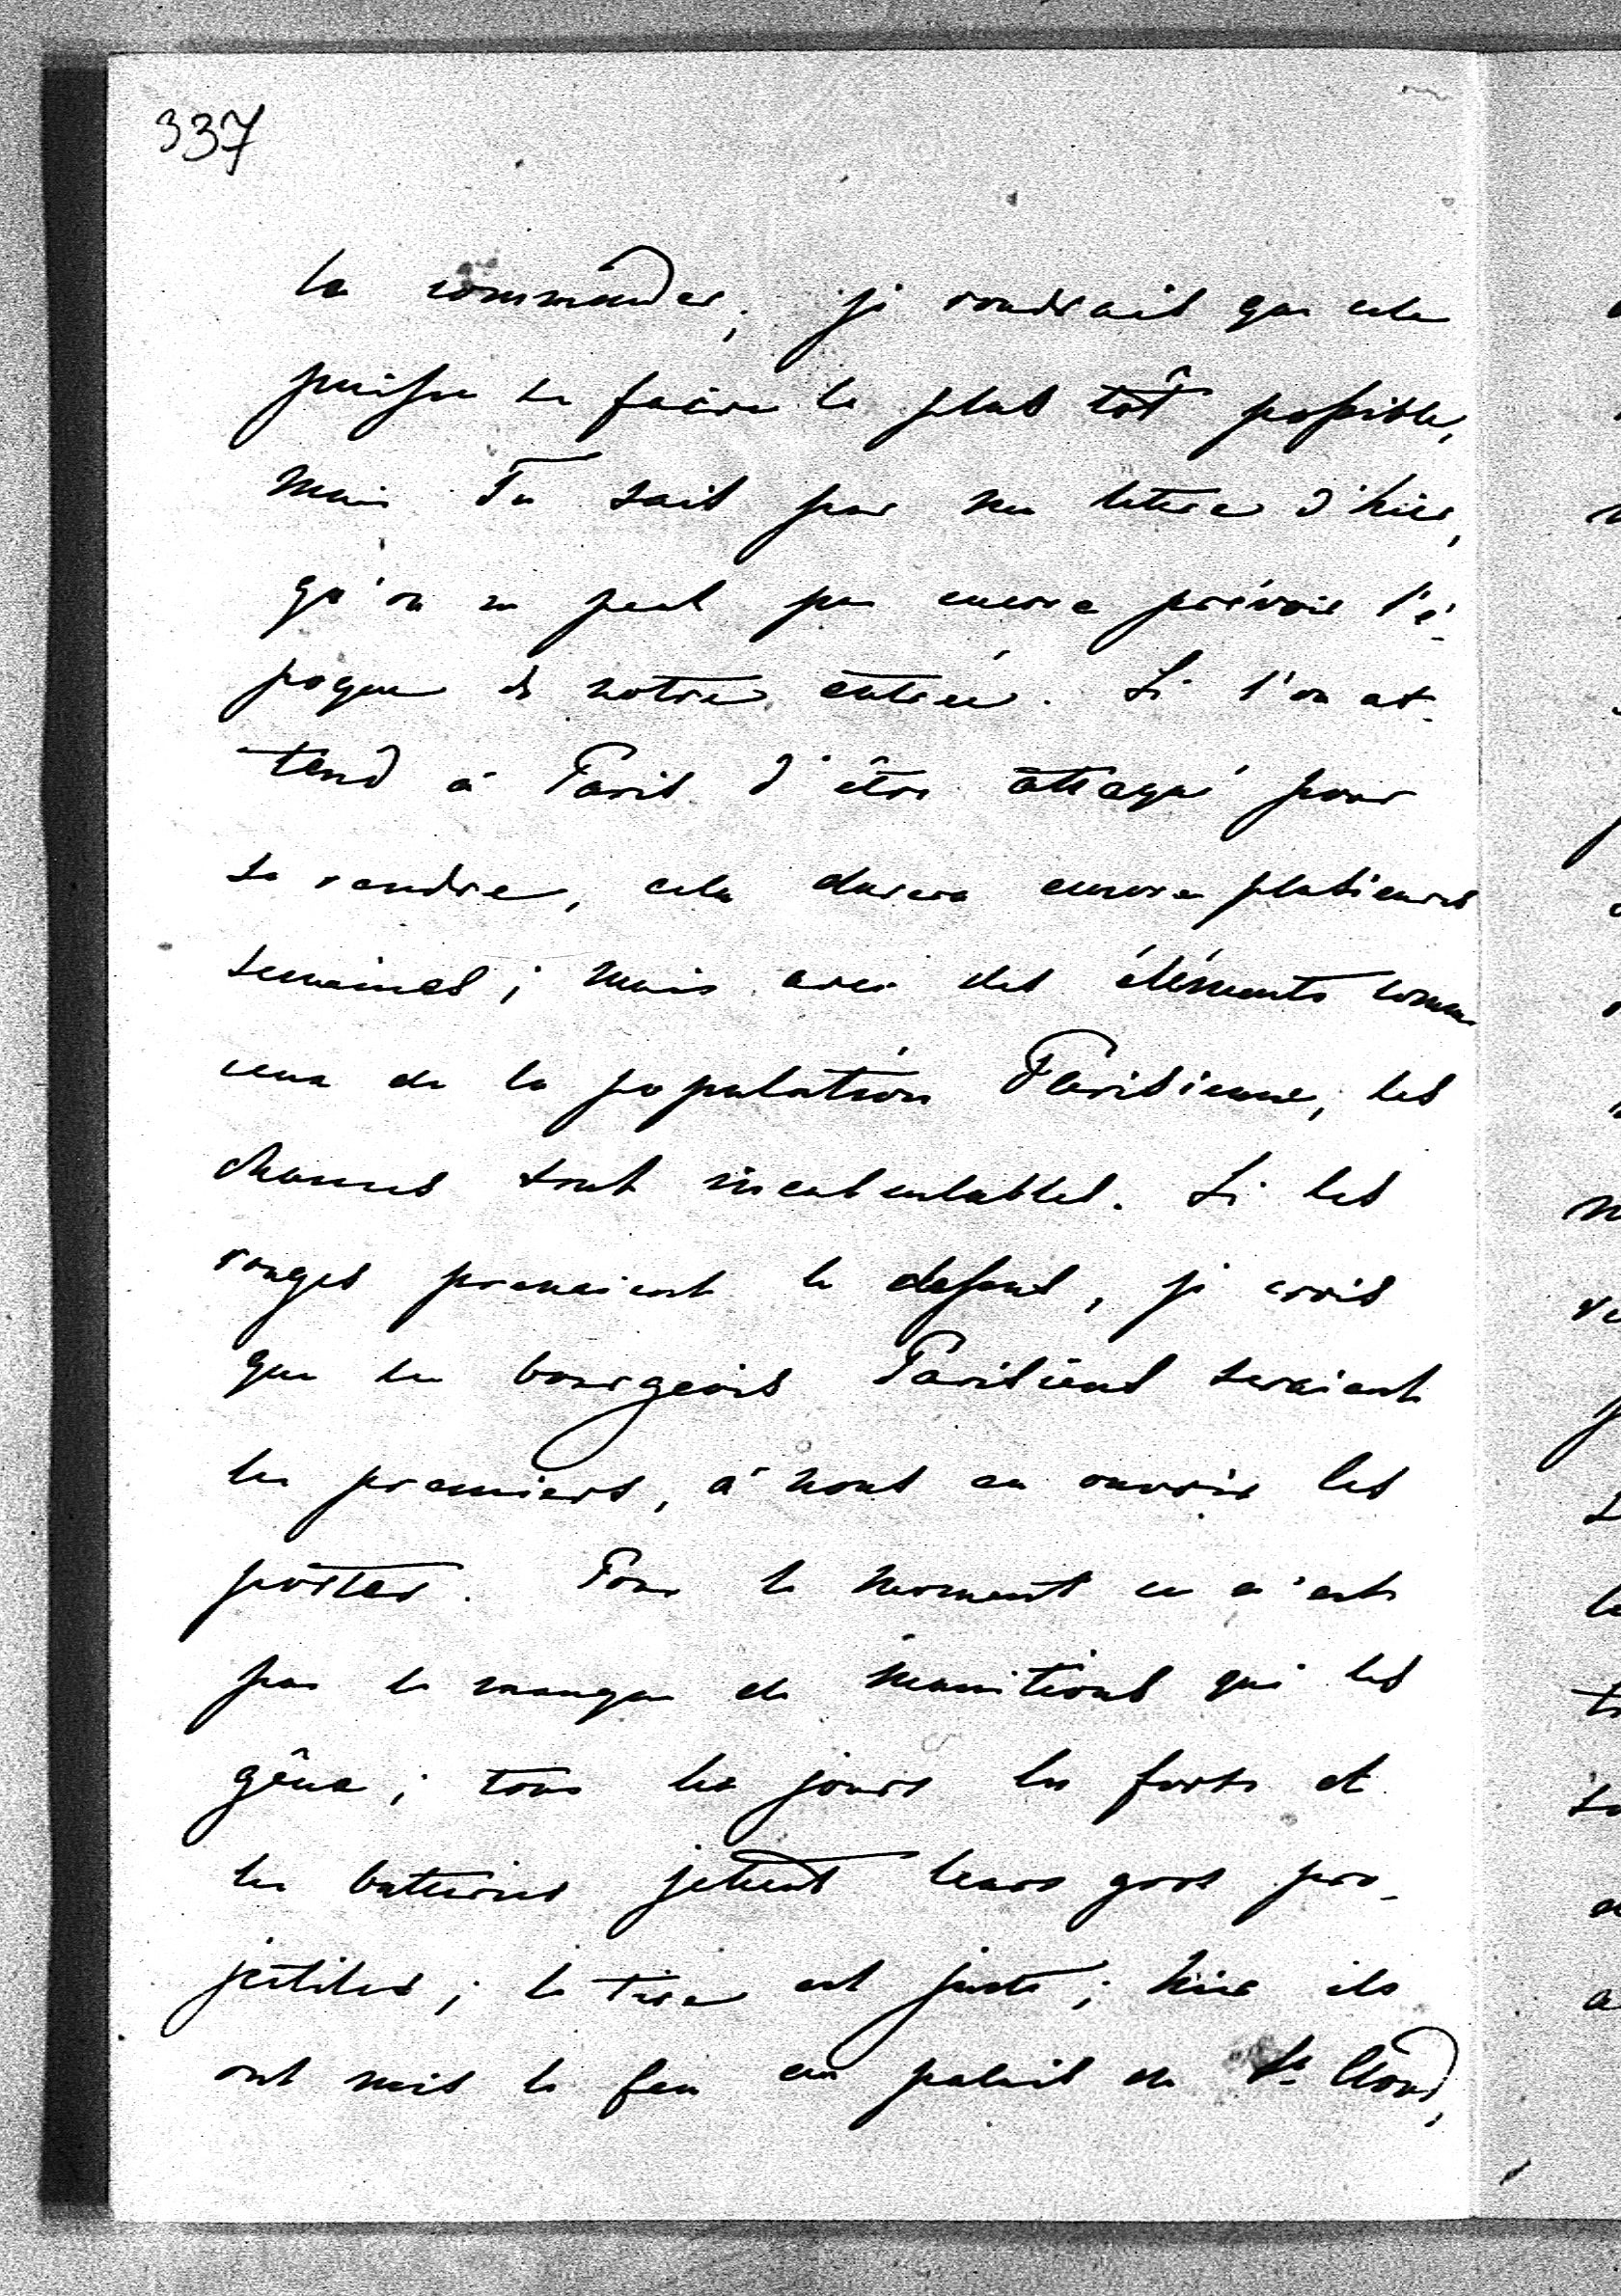 337
la commander, je voudrais que cela
puisse se faire le plus tôt possible,
mais Tu sais par ma lettre d'hier,
qu'on ne peut pas encore prévoir l'é-
poque de notre entrée. Si l'on at-
tend à Paris d'être attaqué pour
se rendre, cela durera encore plusieurs
semaines; mais avec des éléments comme
ceux de la population Parisienne, les
chances sont incalculables. Si les
rouges prenaient le dessus, je crois
que les bourgeois Parisiens seraient
les premiers, à nous en ouvrir les
portes. Pour le moment ce n'est
pas le manque de munitions qui les
gêne; tous les jours les forts et
les batteries jettent leurs gros pro-
jectiles; le tire est juste; hier ils
ont mis le feu au palais de St. Cloud,